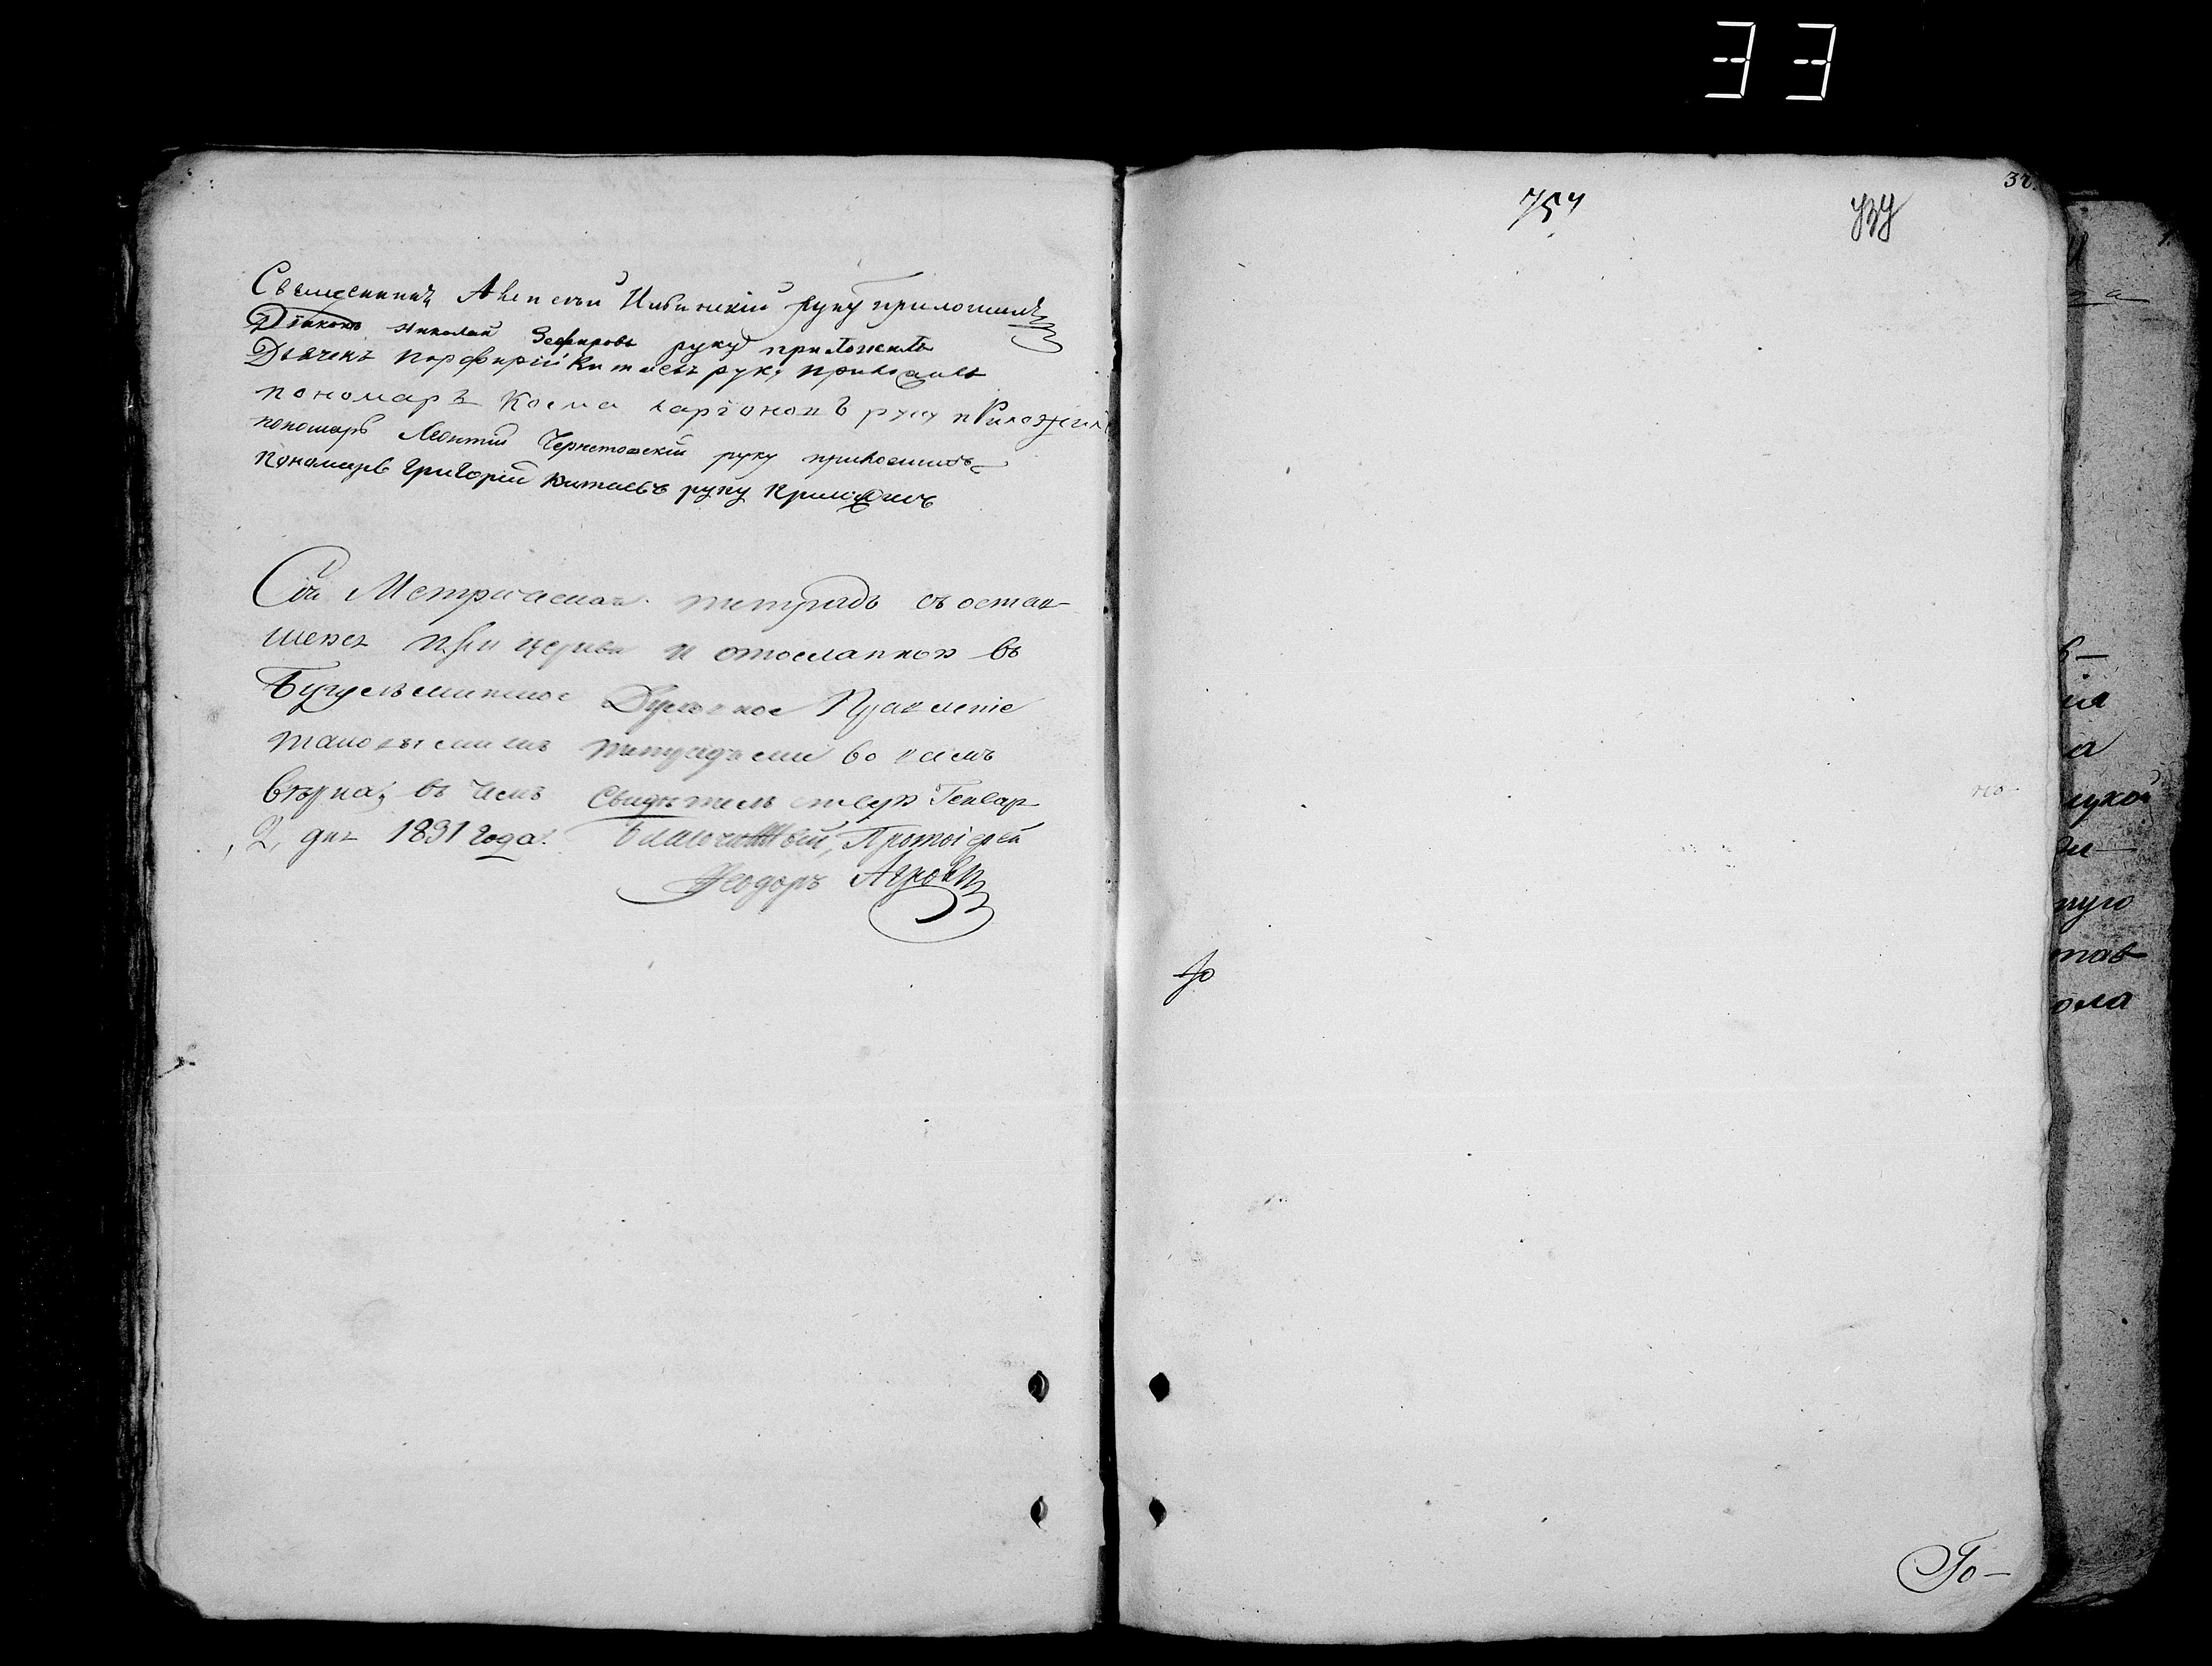 33
32.
754
Священникъ Алексѣй Ильинскій руку приложилъ
Діаконъ Николай Зефировъ руку приложилъ
Дьячекъ Порфирій Китаевъ руку приложилъ
пономарь Косма Ларіоновъ руку приложилъ
пономарь Леонтій руку приложилъ
Пономарь Григорій Китаевъ руку приложилъ
Сія Метрическая тетрадь съ остав-
шеюся при церкви и отосланною въ
Бугульминское Духовное Правленіе
таковыми тетрадьми во всемъ
вѣрна, въ чемъ свидѣтельствую Генвар
2, дня 1831 года. Благочинный, Протоіерей
Ѳеодоръ
Го-